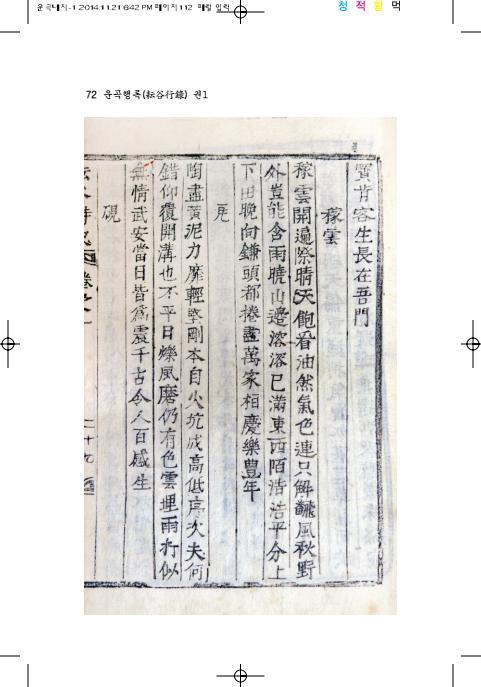 운곡내지-1 2014.11.21 6:42 PM 페이지112
청 적 황 먹
72 운곡행록(耘谷行錄) 권1
質肯容生長在吾門
稼雲
稼雲開遍際晴天飽看油然氣色連只解飜風秋野
外豈能含雨曉山邊溶溶已滿東西陌浩浩平分上
下田晩向鎌頭都捲盡萬家相慶樂豊年
瓦
陶盡黃泥力靡輕堅剛本自火坑成高低序次夫何
錯仰覆開溝也不平日爍風磨仍有色雲埋雨打似
無情武安當日皆爲震千古令人百感生
硯
卷之一
二十九